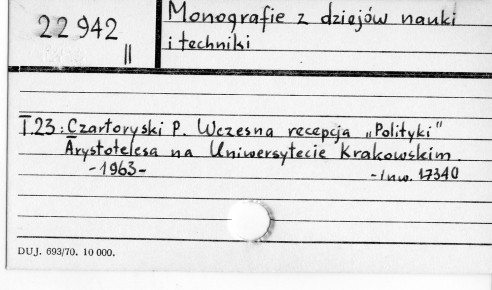 22 942
II
Monografie z dziejów nauki
i techniki
T.23: Czartoryski P. Wczesna recepcja „Polityki"
Arystotelesa na Uniwersytecie Krakowskim.
-1963-
-inw. 17340
DUJ. 693/70. 10 000.